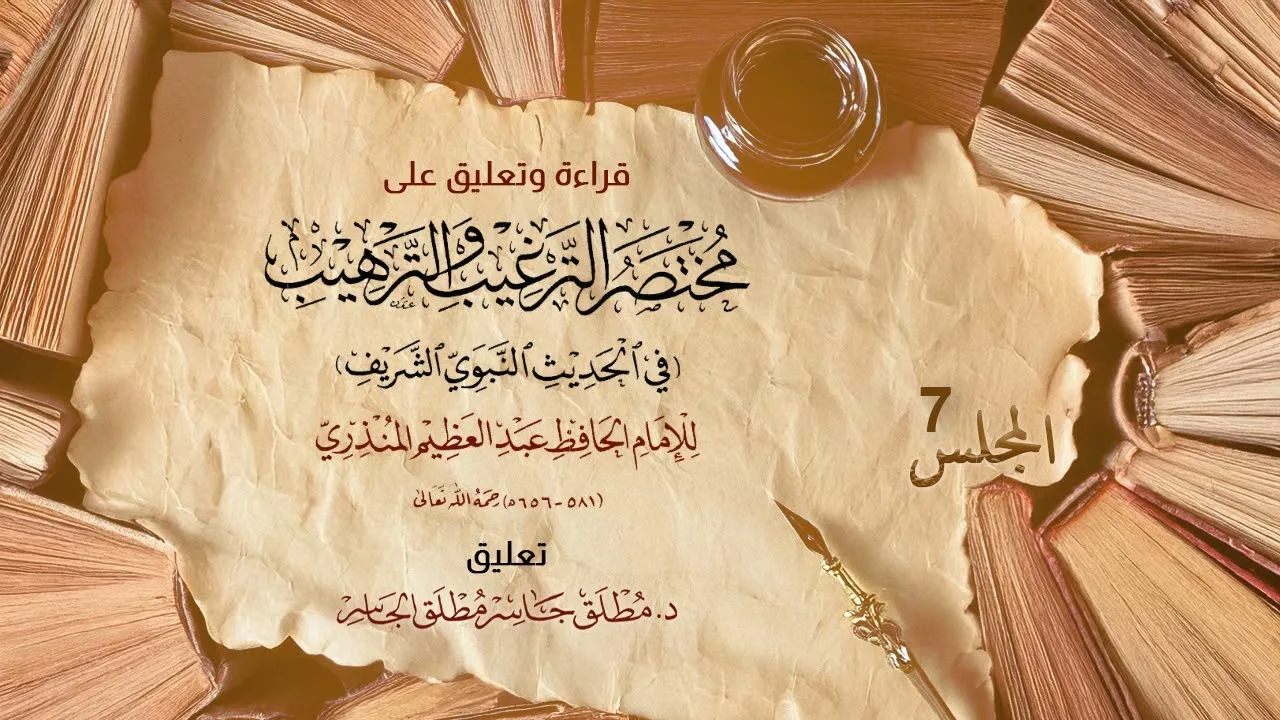 قراءة وتعليق على
مُختَصَرُ التَّرغِيبِ وَالتَّرهِيبِ
(في الْحَدِيثِ النَّبَوِيِّ الشَّرِيفِ)
لِلإِمَامِ الحَافِظِ عَبْدِ العَظِيمِ المُنْذِرِيّ
(٥٨١ - ٦٥٦ه) رَحِمَهُ اللّٰه تَعَالىٰ
تعليق
د. مُطْلَق جَاسِر مُطْلَق الجَاسِر
المجلس 7